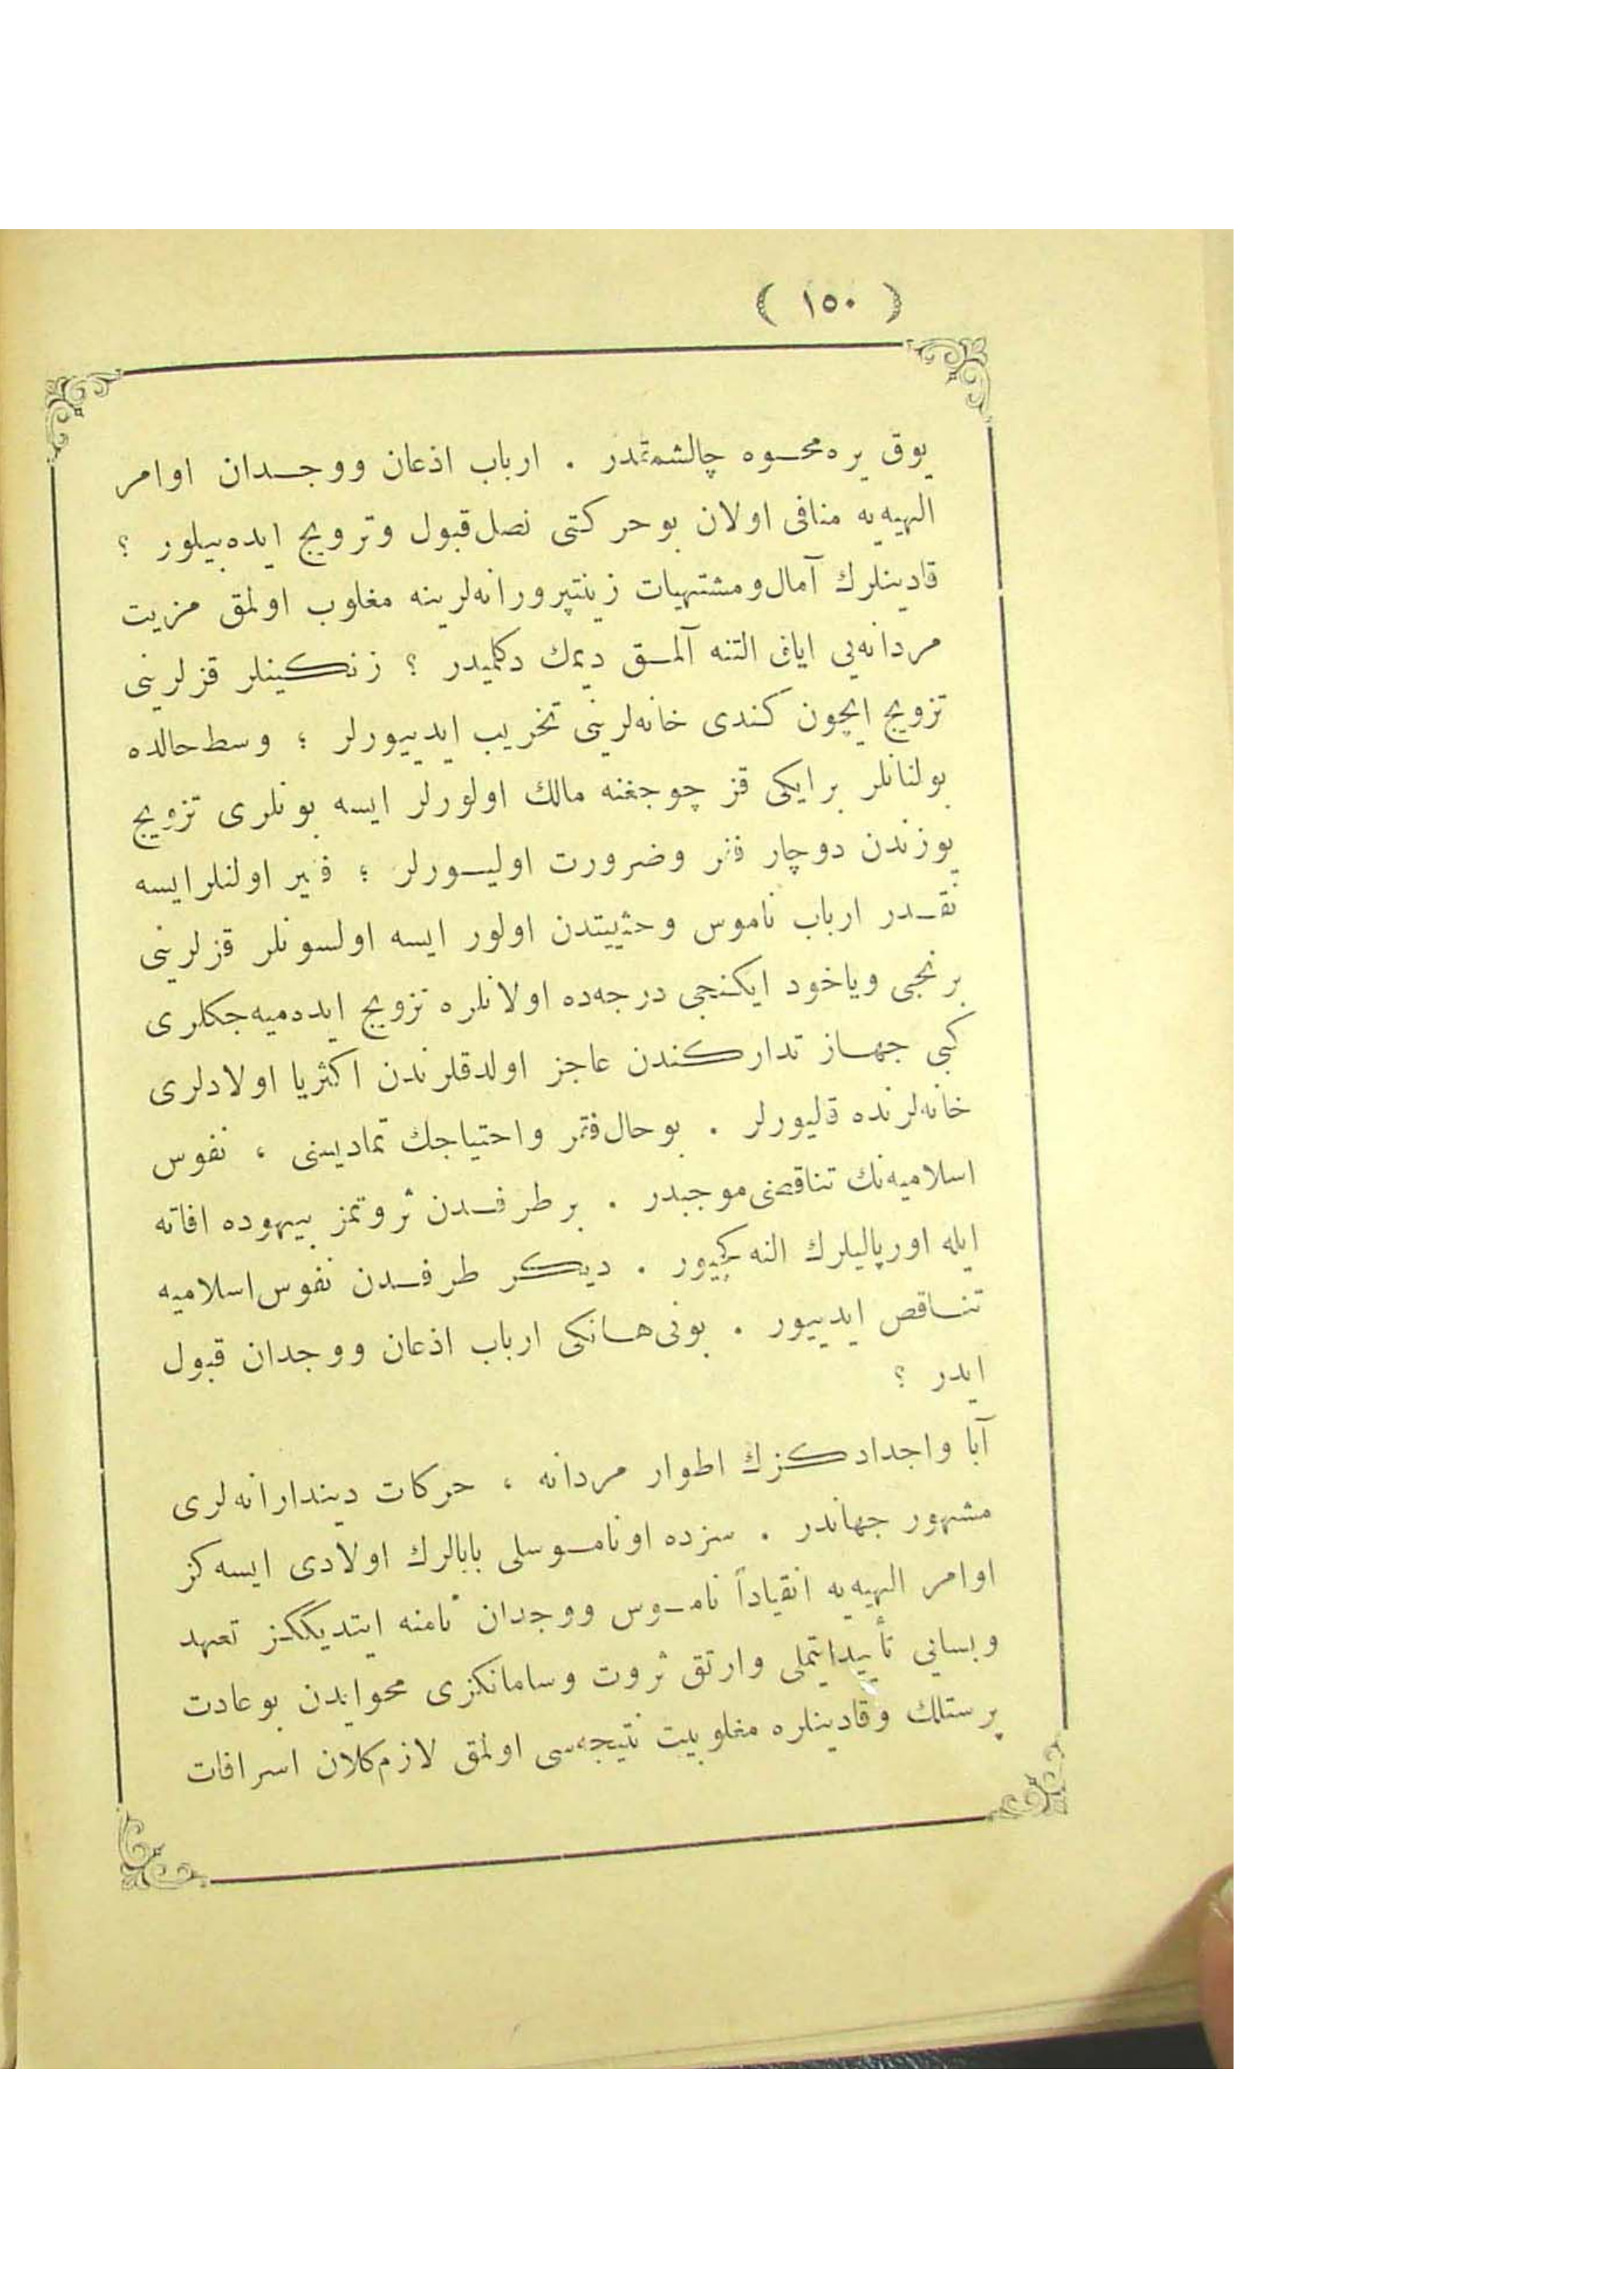 ( ١٥٠ )
يوق يره محوه چالشمقدر . ارباب اذعان ووجدان اوامر
الهيه‌يه منافى اولان بوحركتى نصل قبول وترويج ايده‌بيلور ؟
قادينلرك آمال ومشتهيات زينتپرورانه‌لرينه مغلوب اولمق مزيت
مردانه‌يى اياق التنه آلمق ديمك دكلميدر ؟ زنكينلر قزلرينى
تزويج ايچون كندى خانه‌لرينى تخريب ايدييورلر ؛ وسط حالده
بولنانلر برايكى قز چوجغنه مالك اولورلر ايسه بونلرى تزويج
يوزندن دوچار فقر وضرورت اوليورلر ؛ فقير اولنلرايسه
نقدر ارباب ناموس وحثييتدن اولور ايسه اولسونلر قزلرينى
برنجى وياخود ايكنجى درجه‌ده اولانلره تزويج ايده‌ميه‌جكلرى
كبى جهاز تداركندن عاجز اولدقلرندن اكثريا اولادلرى
خانه‌لرنده قاليورلر . بوحال فقر واحتياجك تماديسنى ، نفوس
اسلاميه‌نك تناقصنى موجبدر . برطرفدن ثروتمز بيهوده افاته
ايله اورپاليلرك النه كچيور . ديكر طرفدن نفوس اسلاميه
تناقص ايدييور . بونى هانكى ارباب اذعان ووجدان قبول
ايدر ؟
آبا واجدادكزك اطوار مردانه ، حركات ديندارانه‌لرى
مشهور جهاندر . سزده اوناموسلى بابالرك اولادى ايسه‌كز
اوامر الهيه‌يه انقياداً ناموس ووجدان نامنه ايتديككز تعهد
وبسانى تأييدايتملى وارتق ثروت وسامانكزى محوايدن بوعادت
پرستلك وقادينلره مغلوبيت نتيجه‌سى اولمق لازم كلان اسرافات